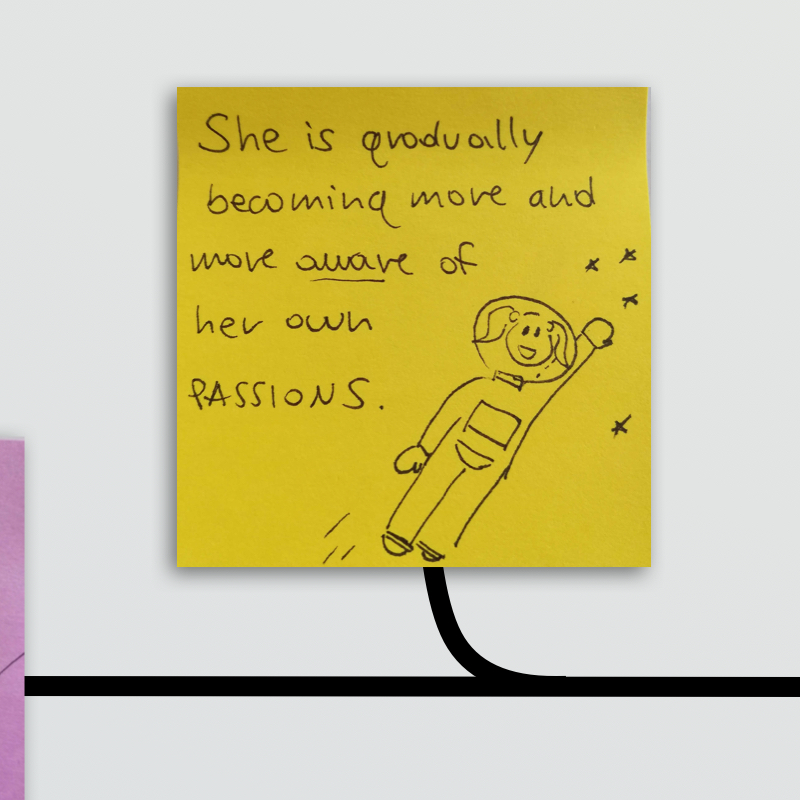 She is gradually
becoming more and
more aware of
her own
PASSIONS.